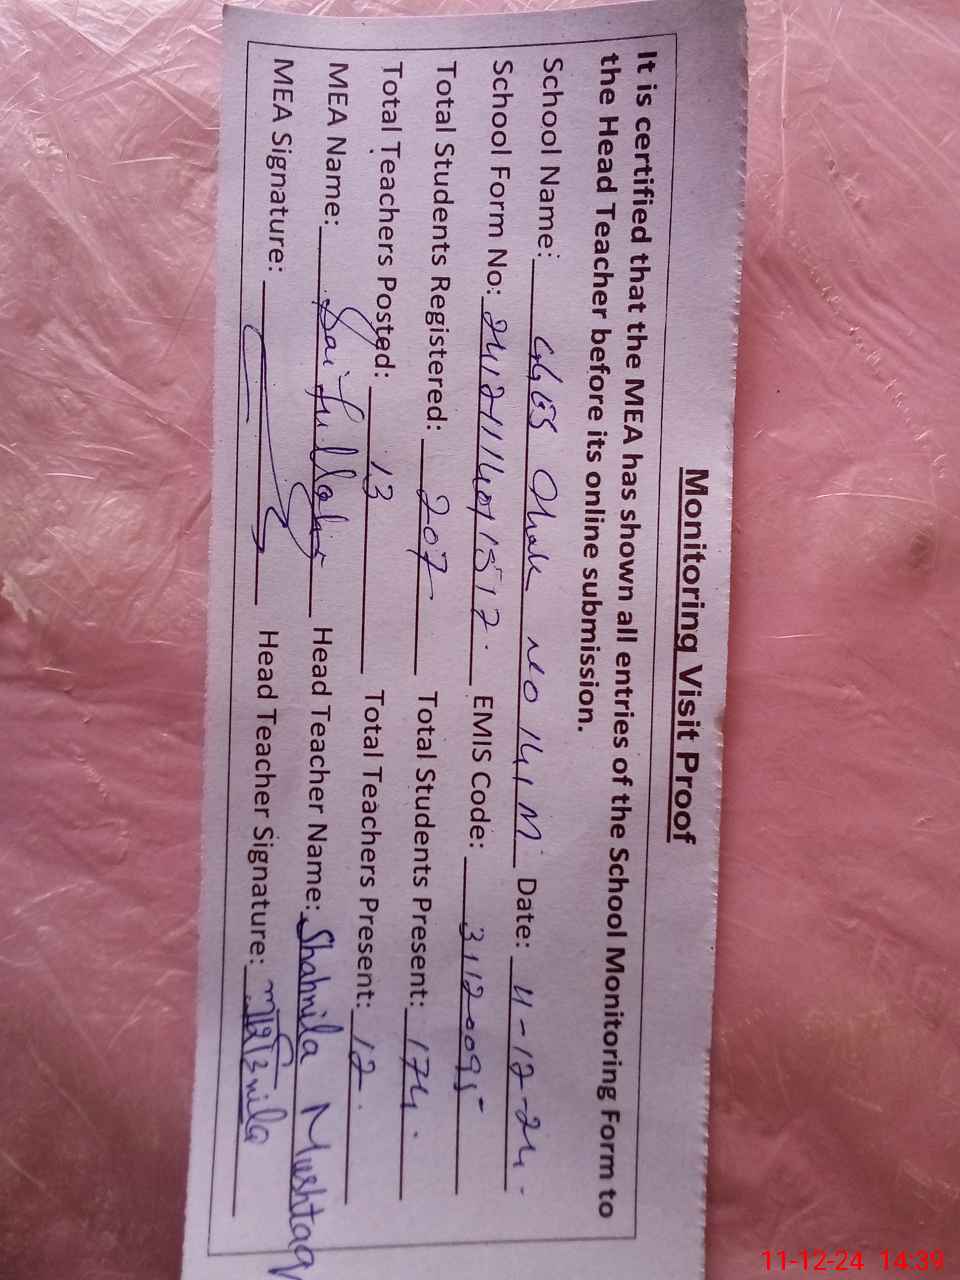 Monitoring Visit Proof
It is certified that the MEA has shown all entries of the School Monitoring Form to
the Head Teacher before its online submission.
School Name: GGES Chak No 141 M Date: 11-12-24.
School Form No: EMIS Code: 31120095
Total Students Registered: 207 Total Students Present: 174.
Total Teachers Posted: 13 Total Teachers Present: 12.
MEA Name: Saifullah Head Teacher Name: Shahnila Mushtaq
MEA Signature: Head Teacher Signature:
11-12-24 14:39